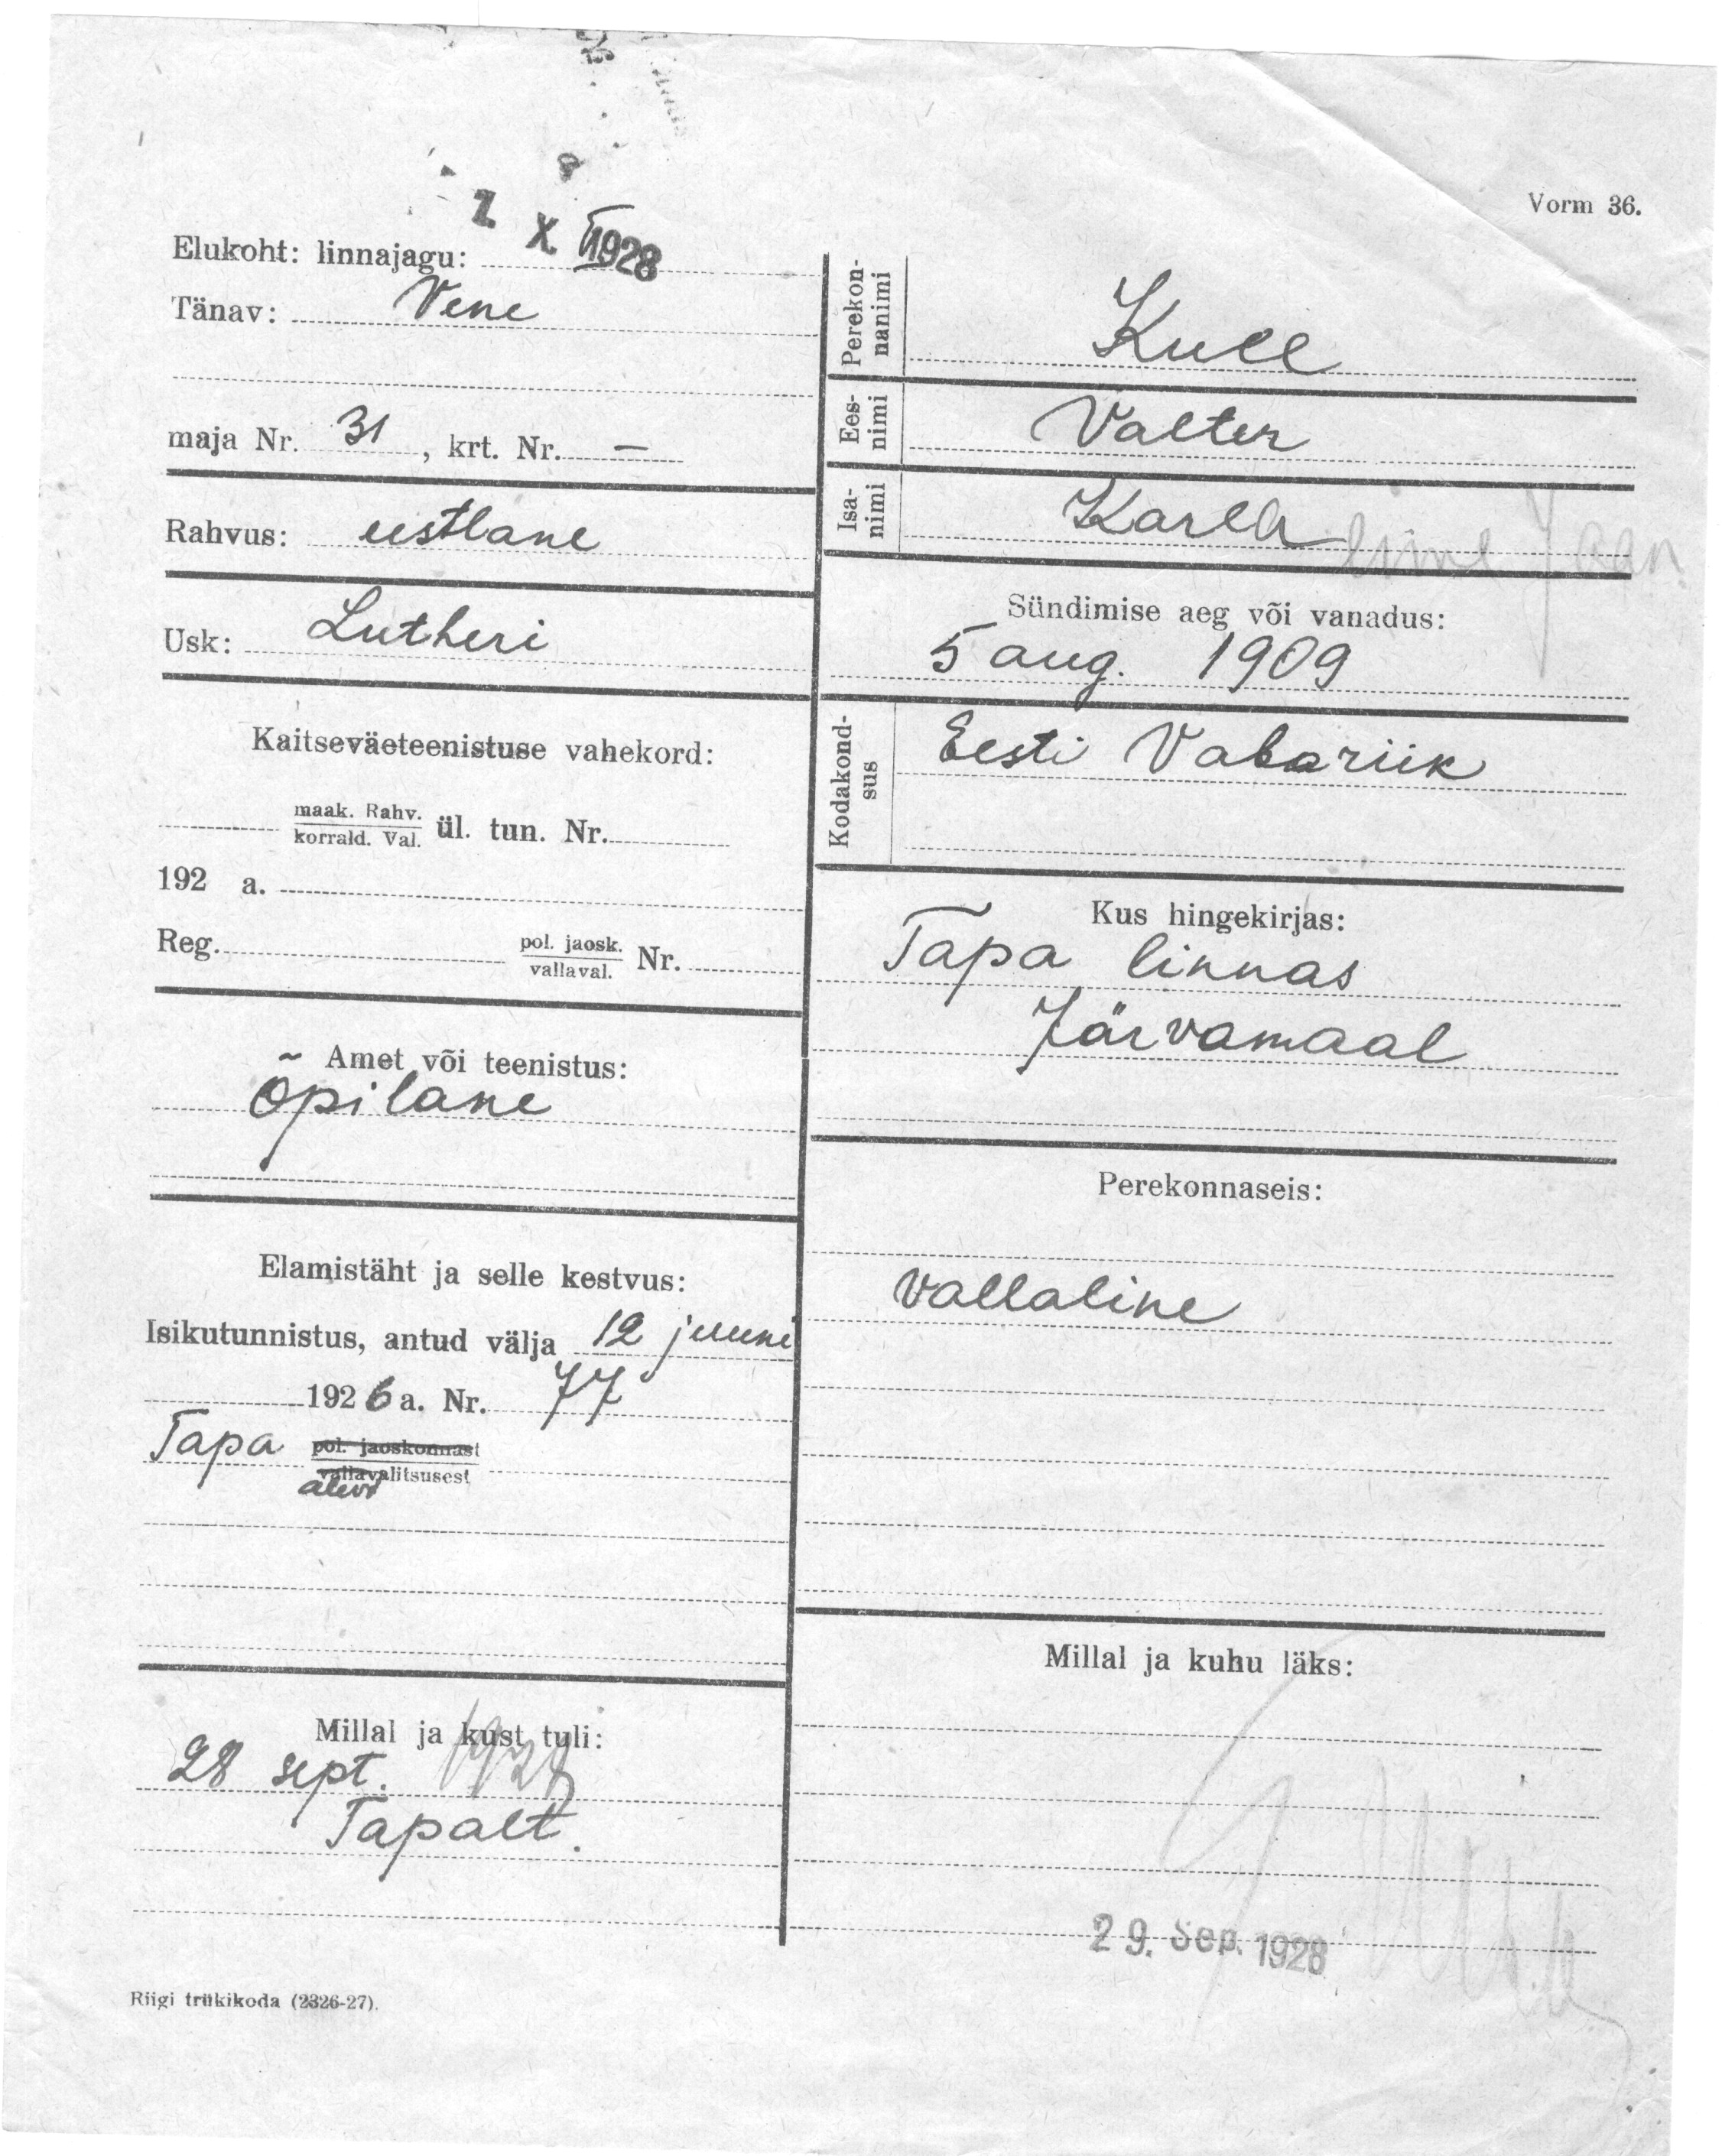 Vorm 36.
X. 1928
Elukoht: linnajagu: II
Tänav: Vene
maja Nr. 31, krt. Nr. —
Rahvus: eestlane
Usk: Lutheri
Kaitseväeteenistuse vahekord:
maak. Rahv.
korrald. Val. ül. tun. Nr.
192 a.
Reg. pol. jaosk.
vallaval. Nr.
Amet või teenistus:
Õpilane
Elamistäht ja selle kestvus:
Isikutunnistus, antud välja 12 juuni
1926 a. Nr. 77
Tapa pol. jaoskonnast
vallavalitsusest
alevi
Millal ja kust tuli:
28 sept. 1928
Tapalt.
Riigi trükikoda (2326-27).
Perekonnanimi
Kull
Eesnimi
Valter
Isanimi
Karla Jaan
Sündimise aeg või vanadus:
5 aug. 1909
Kodakondsus
Eesti Vabariik
Kus hingekirjas:
Tapa linnas
Järvamaal
Perekonnaseis:
vallaline
Millal ja kuhu läks:
29. Sep. 1928